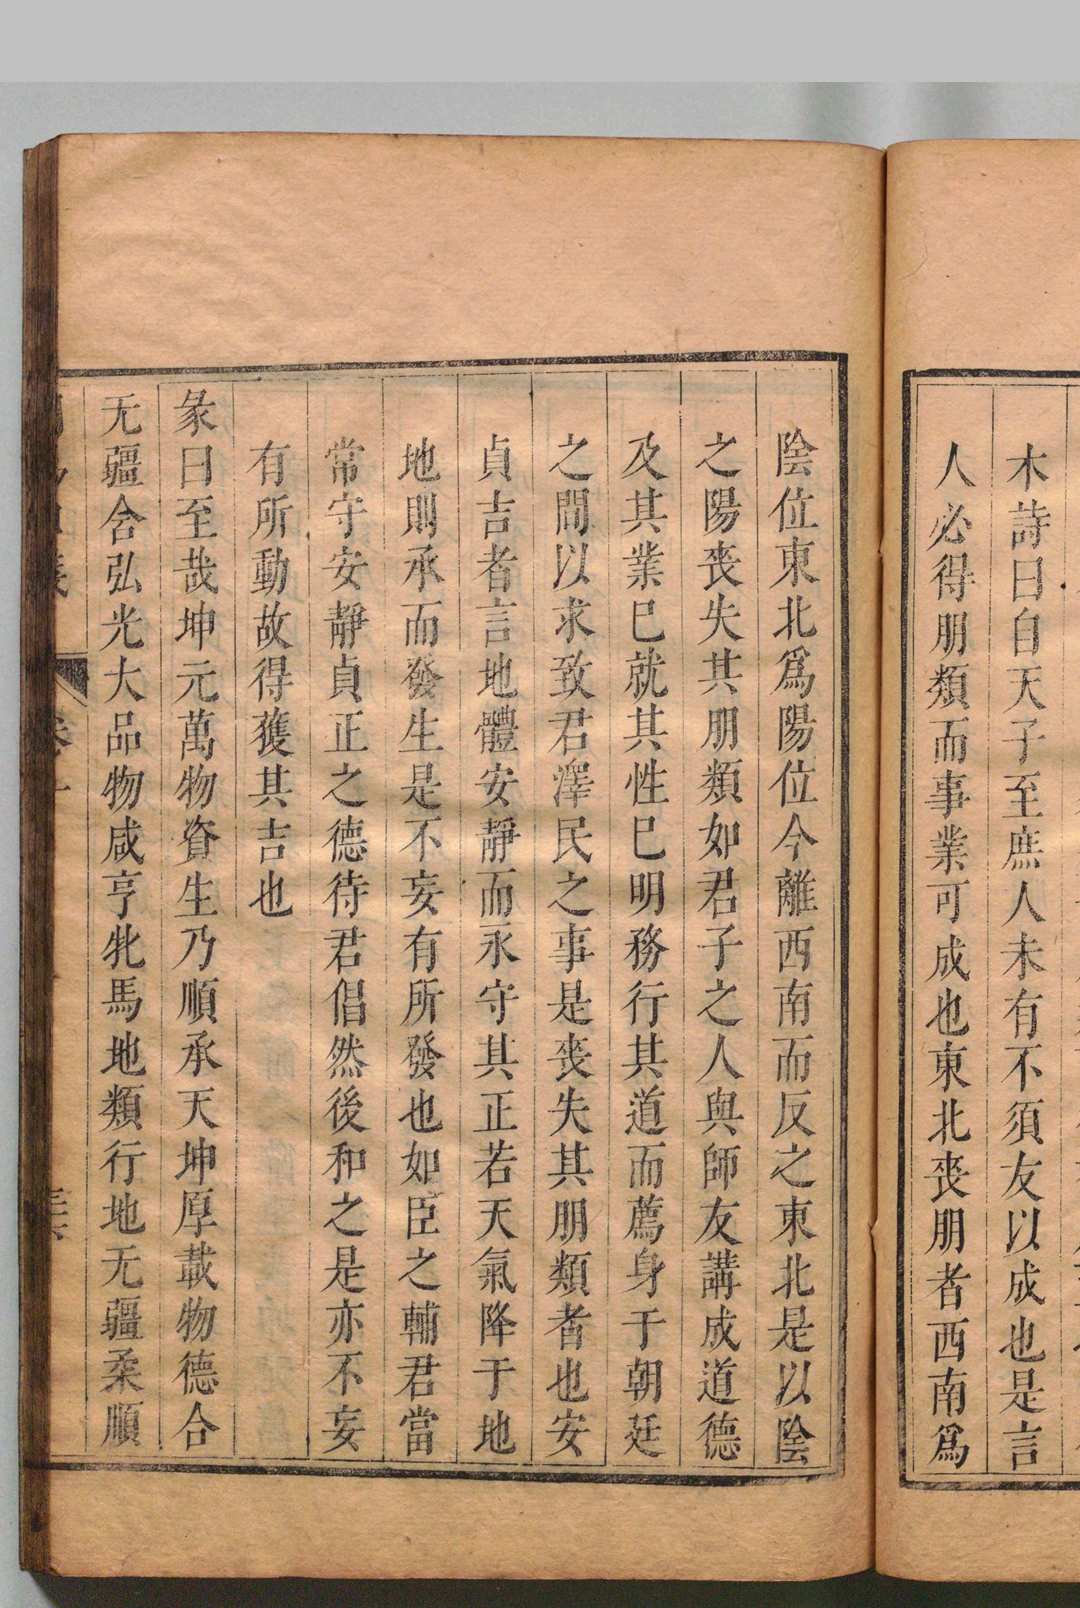 木詩曰自天子至庶人未有不須友以成也是言
人必得朋類而事業可成也東北喪朋者西南爲
陰位東北爲陽位今離西南而反之東北是以陰
之陽喪失其朋類如君子之人與師友講成道德
及其業巳就其性巳明務行其道而薦身于朝廷
之間以求致君澤民之事是喪失其朋類者也安
貞吉者言地體安靜而永守其正若天氣降于地
地則承而發生是不妄有所發也如臣之輔君當
常守安靜貞正之德待君倡然後和之是亦不妄
有所動故得獲其吉也
彖曰至哉坤元萬物資生乃順承天坤厚載物德合
无疆含弘光大品物咸亨牝馬地類行地无疆柔順